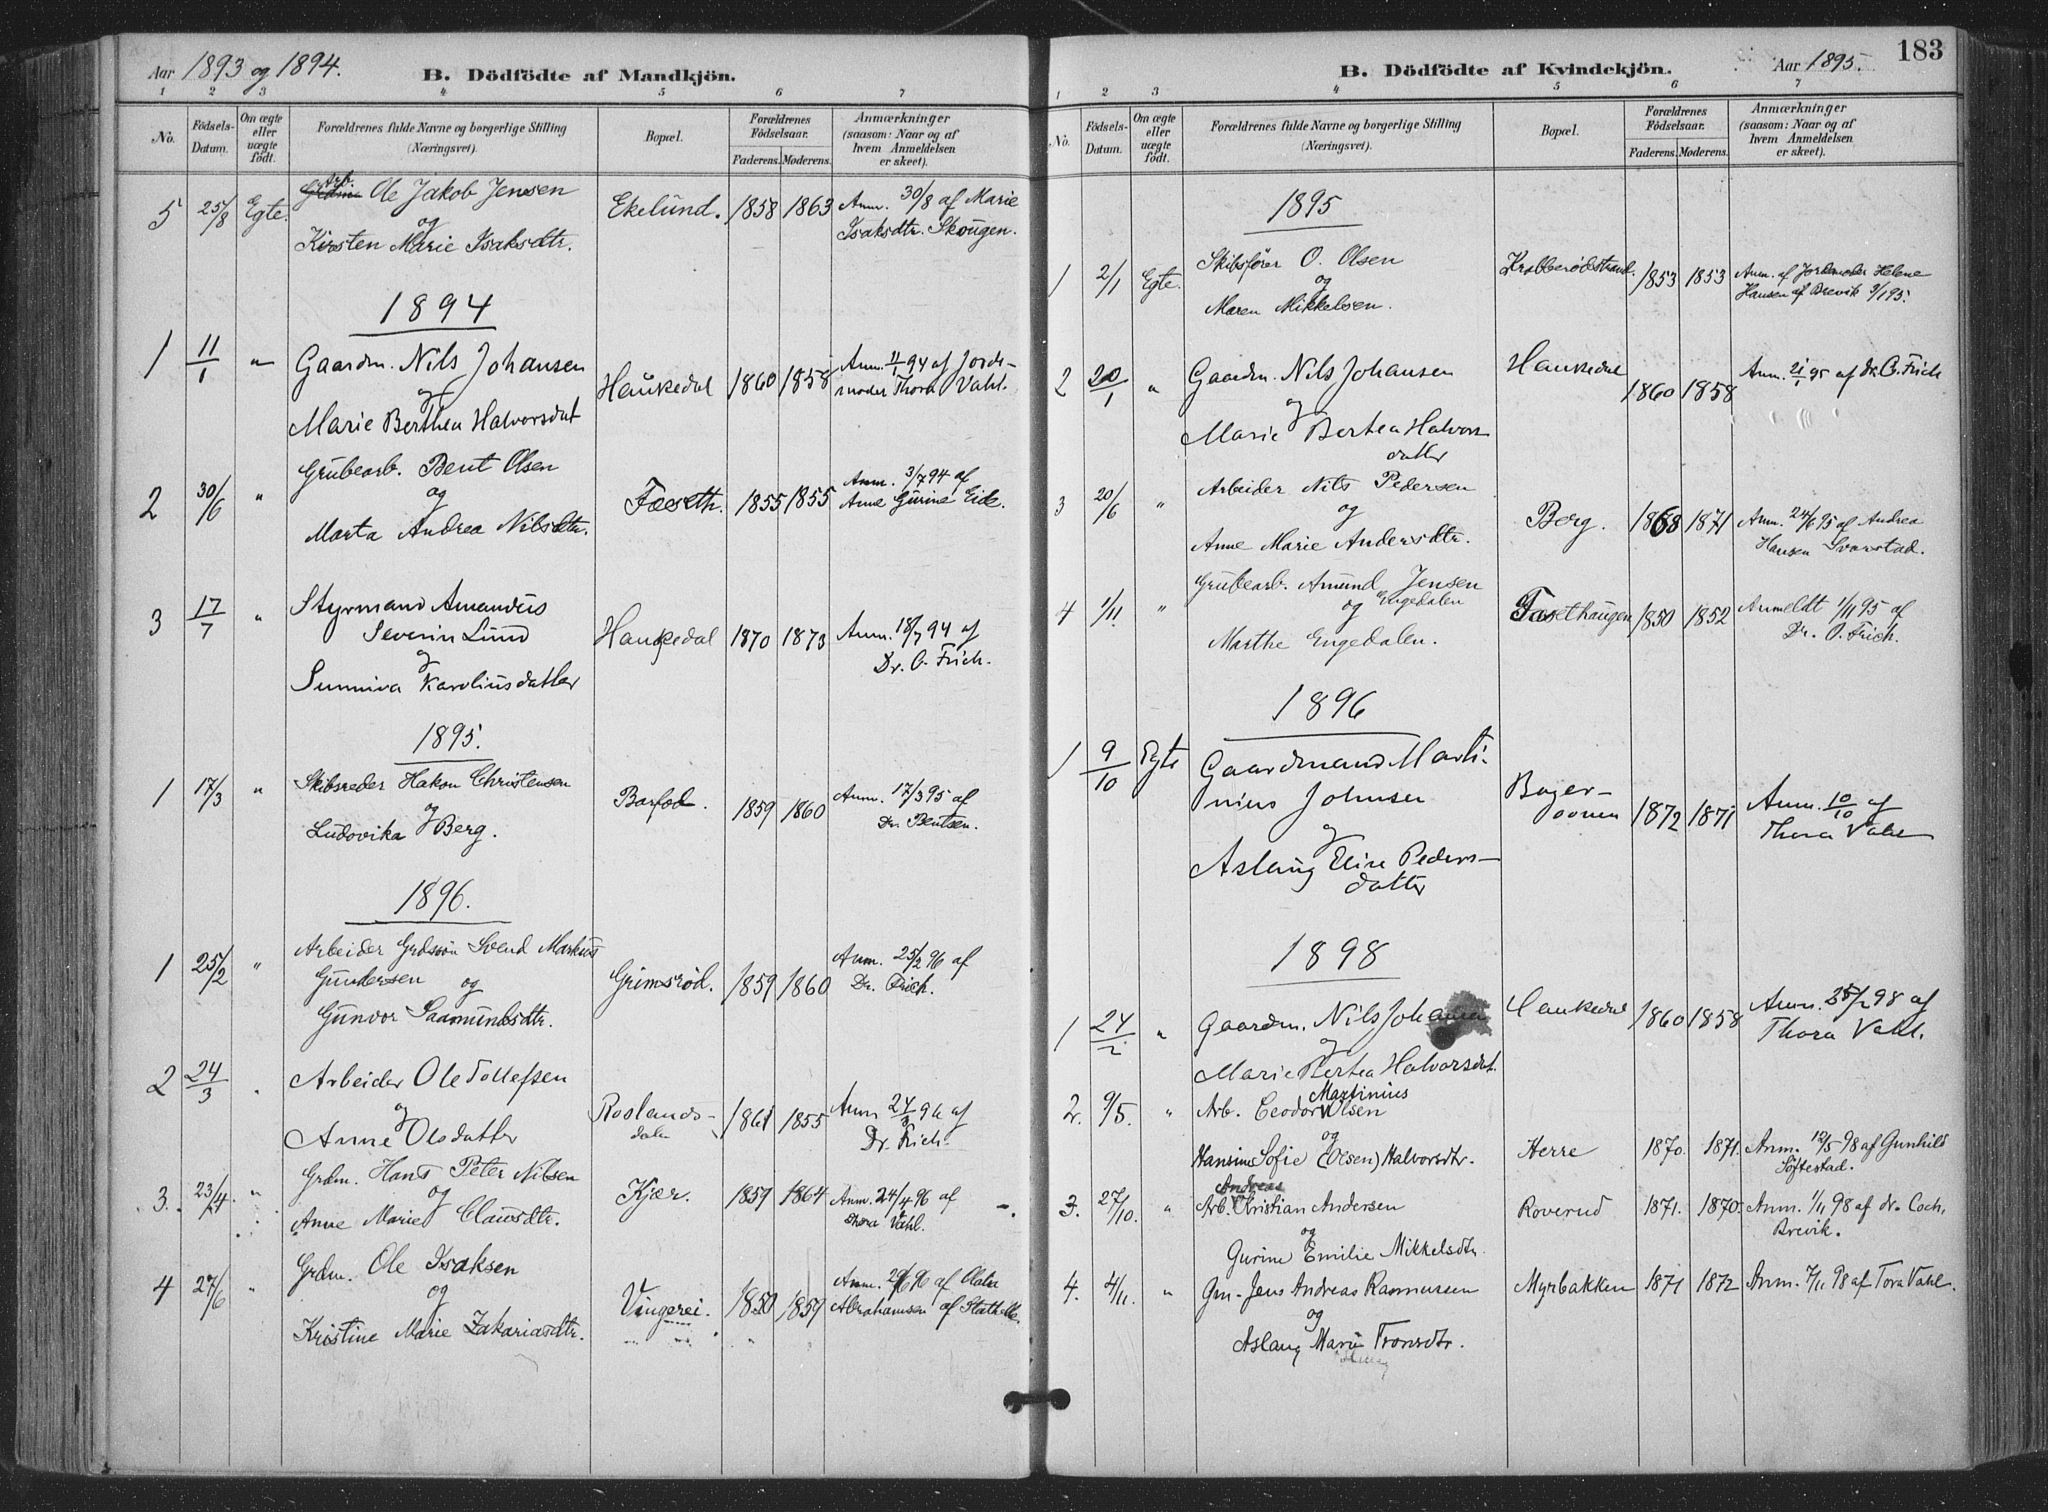 Aar 1893 og 1894. B. Dödfödte af Mandkjön.
1 2 3 4 5 6 7
No. Födsels-Datum. Om ægte eller uægte födt. Forældrenes fulde Navne og borgerlige Stilling (Næringsvei). Bopæl. Forældrenes Födselsaar. Faderens. Moderens. Anmærkninger (saasom: Naar og af hvem Anmeldelsen er skeet).
5 25/8 Egte. Arb. Ole Jakob Jensen Ekelund. 1858 1863 Anm. 30/8 af Marie
og
Kirsten Marie Isaksdtr. Isaksdtr. Skougen.
1894
1 11/1 " Gaardm. Nils Johansen Haukedal 1860 1858 Anm. 11/1 94 af Jorde-
og moder Thora Vahl.
Marie Berthea Halvorsdat
2 30/6 " Grubearb. Bent Olsen Faseth. 1855 1855 Anm. 3/7 94 af
og Anne Gurine Eide.
Marta Andrea Nilsdtr.
3 17/7 " Styrmand Amandus
Severin Lund Haukedal 1870 1873 Anm. 18/7 94 af
og Dr. C. Frich.
Sunniva Karoliusdatter
1895.
1 17/3 " Skibsreder Hakon Christensen Barfod. 1859 1860 Anm. 17/3 95 af
og Dr. Bentsen.
Ludovika Berg.
1896.
1 25/2 " Arbeider Grdsøn Svend Markus
Gundersen og Grimsrød. 1859 1860 Anm. 25/2 96 af
Gunvor Saamundsdtr. Dr. Frich.
2 24/3 " Arbeider Ole Tollefsen
og Roslands-dalen 1861 1855 Anm 24/3 96 af
Anne Olsdatter Dr. Frich.
3. 23/4 " Grdm. Hans Peter Nilsen
og Kjær. 1859 1864 Anm. 24/4 96 af
Anne Marie Clausdtr. Thora Vahl.
4 27/6 " Grdm. Ole Isaksen
og Vingerei. 1850 1859 Anm. 29/6 96 af
Kristine Marie Zakariasdtr. Abrahamsen af Stathelle.
183
B. Dödfödte af Kvindekjön. Aar 1895.
1 2 3 4 5 6 7
No. Födsels-Datum. Om ægte eller uægte födt. Forældrenes fulde Navne og borgerlige Stilling (Næringsvei). Bopæl. Forældrenes Födselsaar. Faderens. Møderens. Anmærkninger (saasom: Naar og af hvem Anmeldelsen er skeet).
1895
1 2/1 Egte. Skibsfører O. Olsen Krabberødstrand. 1853 1853 Anm. af Jordemoder Helene
og Hansen af Brevik 3/1 95.
Maren Mikkelsen.
2 20/1 " Gaardm. Nils Johansen Haukedal 1860 1858 Anm. 21/1 95 af dr. C. Frich
og
Marie Bertea Halvors
datter
3 20/6 " Arbeider Nils Pedersen
og Berg. 1868 1871 Anm. 24/6 95 af Andrea
Anne Marie Andersdtr. Hansen Svanstad.
4 1/11. " Grubearb. Amund Jensen
og Engedalen Fasethaugen 1850 1852 Anmeldt 1/11 95 af
Marthe Engedalen. Dr. O. Frich.
1896
1 9/10 Egte Gaardmand Marti-
nius Johnsen 1872 1871 Anm. 10/10 af
og Thora Vahl
Aslaug Elise Peders-
datter
1898
1 24/2 " Gaardm. Nils Johansen Haukedal 1860 1858 Anm. 25/2 98 af
og Thora Vahl.
Marie Bertea Halvorsdat.
2. 9/5. " Arb. Teodor Martinius Olsen
og
Hansine Sofie (Olsen) Halvorsdtr. Herre 1870. 1871. Anm. 12/5 98 af Gunhild
Softestad.
3. 27/10. " Arb. Christian Andreas Andersen Roverud 1871. 1870. Anm. 1/11 98 af dr. Coch,
og Brevik.
Gurine Emilie Mikkelsdtr.
4. 4/11. " Gm. Jens Andreas Rasmussen Myrbakken 1871 1872 Anm. 7/11 98 af Tora Vahl.
og
Aslaug Marie Tronsdtr.